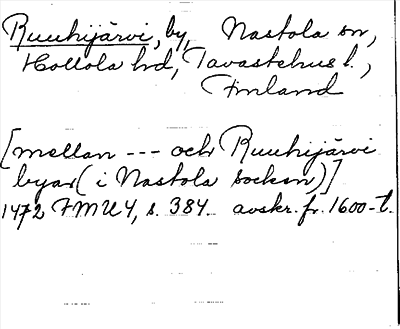 Ruuhijärvi, by, Nastola sn,
Hollola hd, Tavastehus l.,
Finland
[mellan --- och Ruuhijärvi
byar (i Nastola socken)]
1472 FMU 4, s. 384. avskr. fr. 1600-t.